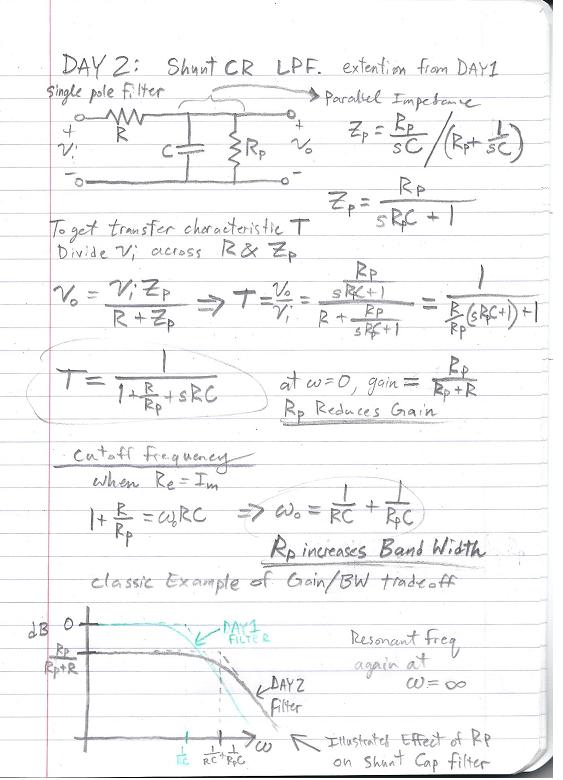 DAY 2: Shunt CR LPF. extention from DAY1
Single pole filter
Parallel Impedance
+ Vi - R C Rp + Vo -
Zp = Rp/sC / (Rp + 1/sC)
Zp = Rp / (sRpC + 1)
To get transfer characteristic T
Divide Vi across R & Zp
Vo = Vi Zp / (R + Zp) => T = Vo/Vi = (Rp/(sRpC+1)) / (R + Rp/(sRpC+1)) = 1 / (R/Rp (sRpC+1) + 1)
T = 1 / (1 + R/Rp + sRC)
at ω=0, gain = Rp/(Rp+R)
Rp Reduces Gain
Cutoff frequency
when Re = Im
1 + R/Rp = ω₀RC => ω₀ = 1/RC + 1/RpC
Rp increases Band Width
classic Example of Gain/BW tradeoff
dB 0
Rp/(Rp+R)
DAY1
FILTER
DAY2
Filter
1/RC 1/RC + 1/RpC ω
Resonant freq
again at
ω = ∞
Illustrated Effect of Rp
on Shunt Cap filter